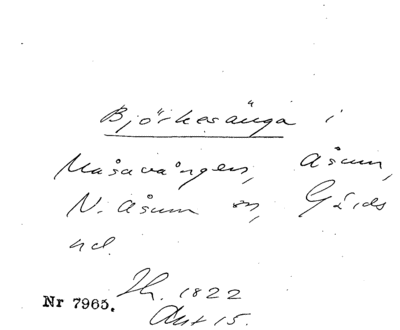 Björkesänga i
Måsavången, Åsum,
N. Åsum sn, Gärds
hd.
Nr 7965. Th. 1822
Akt 15.